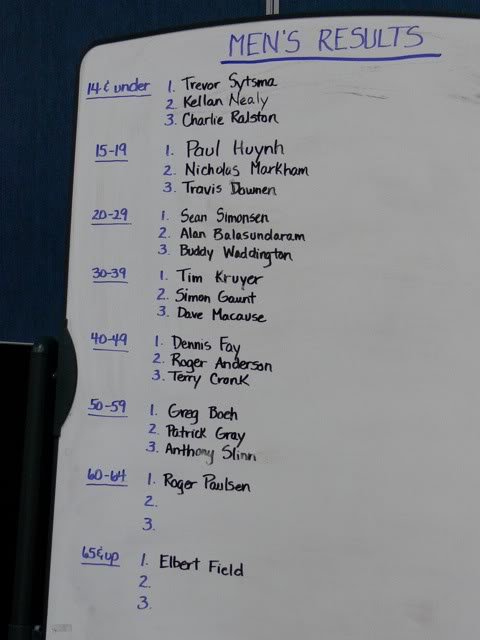 MEN'S RESULTS
14 & under 1. Trevor Sytsma
2. Kellan Nealy
3. Charlie Ralston
15-19 1. Paul Huynh
2. Nicholas Markham
3. Travis Downen
20-29 1. Sean Simonsen
2. Alan Balasundaram
3. Buddy Waddington
30-39 1. Tim Kruyer
2. Simon Gaunt
3. Dave Macause
40-49 1. Dennis Fay
2. Roger Anderson
3. Terry Cronk
50-59 1. Greg Boeh
2. Patrick Gray
3. Anthony Slinn
60-64 1. Roger Paulsen
2.
3.
65 & up 1. Elbert Field
2.
3.